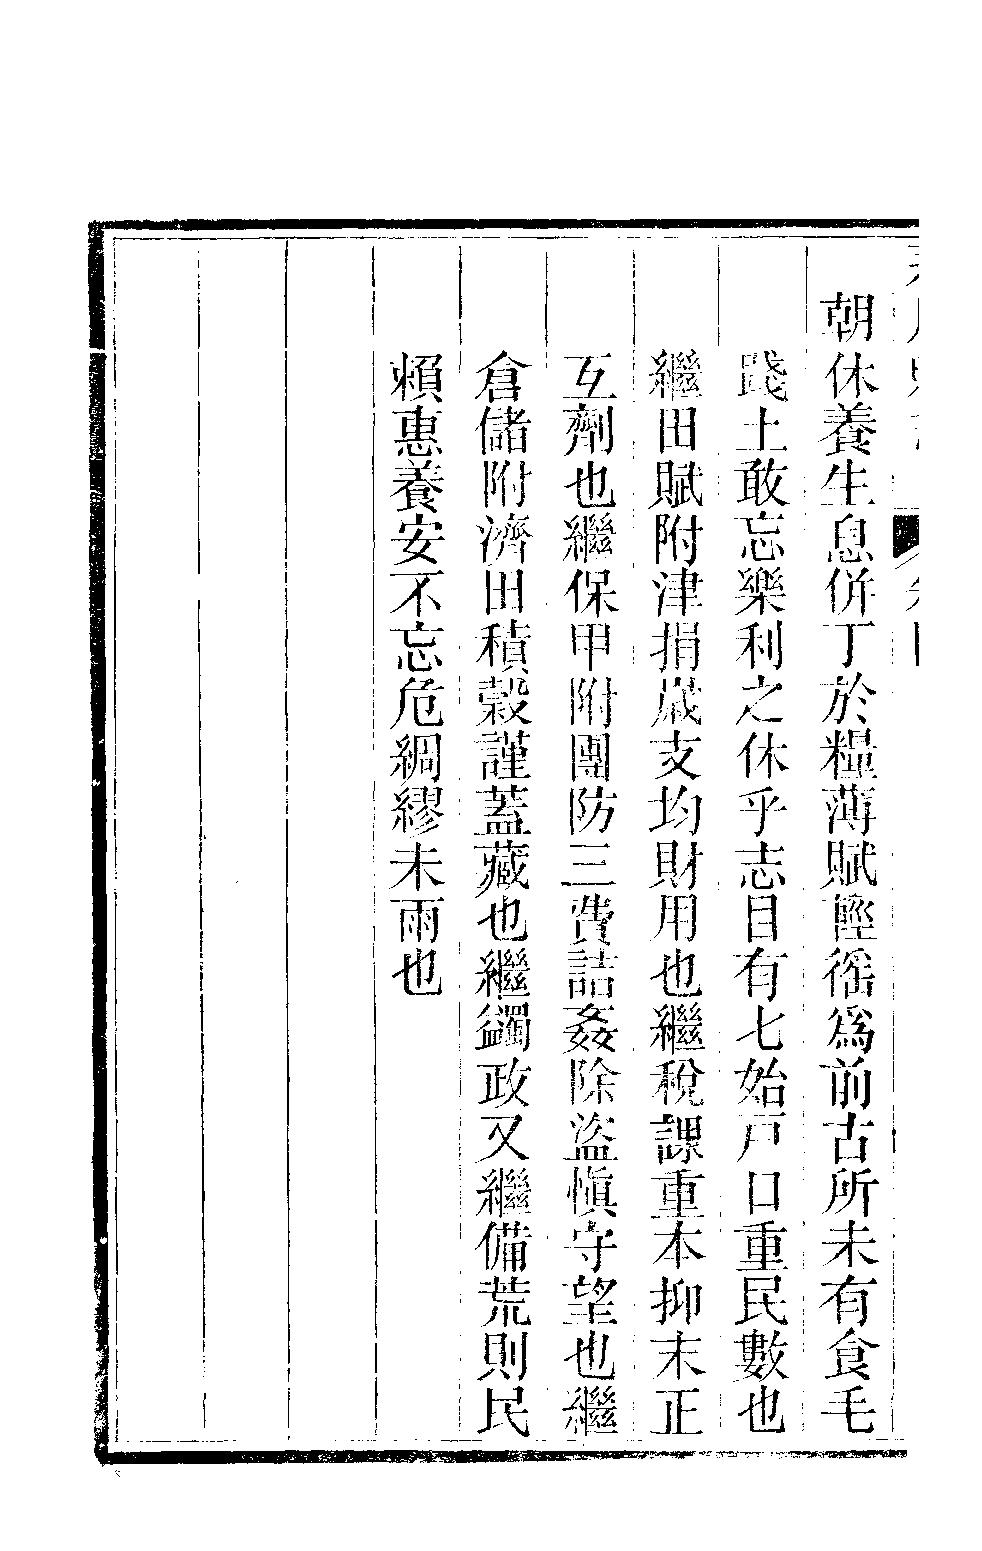 朝休養生息併丁於糧薄賦輕徭爲前古所未有食毛
踐土敢忘樂利之休乎志目有七始戸口重民數也
繼田賦附津捐歲支均財用也繼稅課重本抑末正
互劑也繼保甲附團防三費詰姦除盜愼守望也繼
倉儲附濟田積穀謹蓋藏也繼蠲政又繼備荒則民
賴惠養安不忘危綢繆未雨也